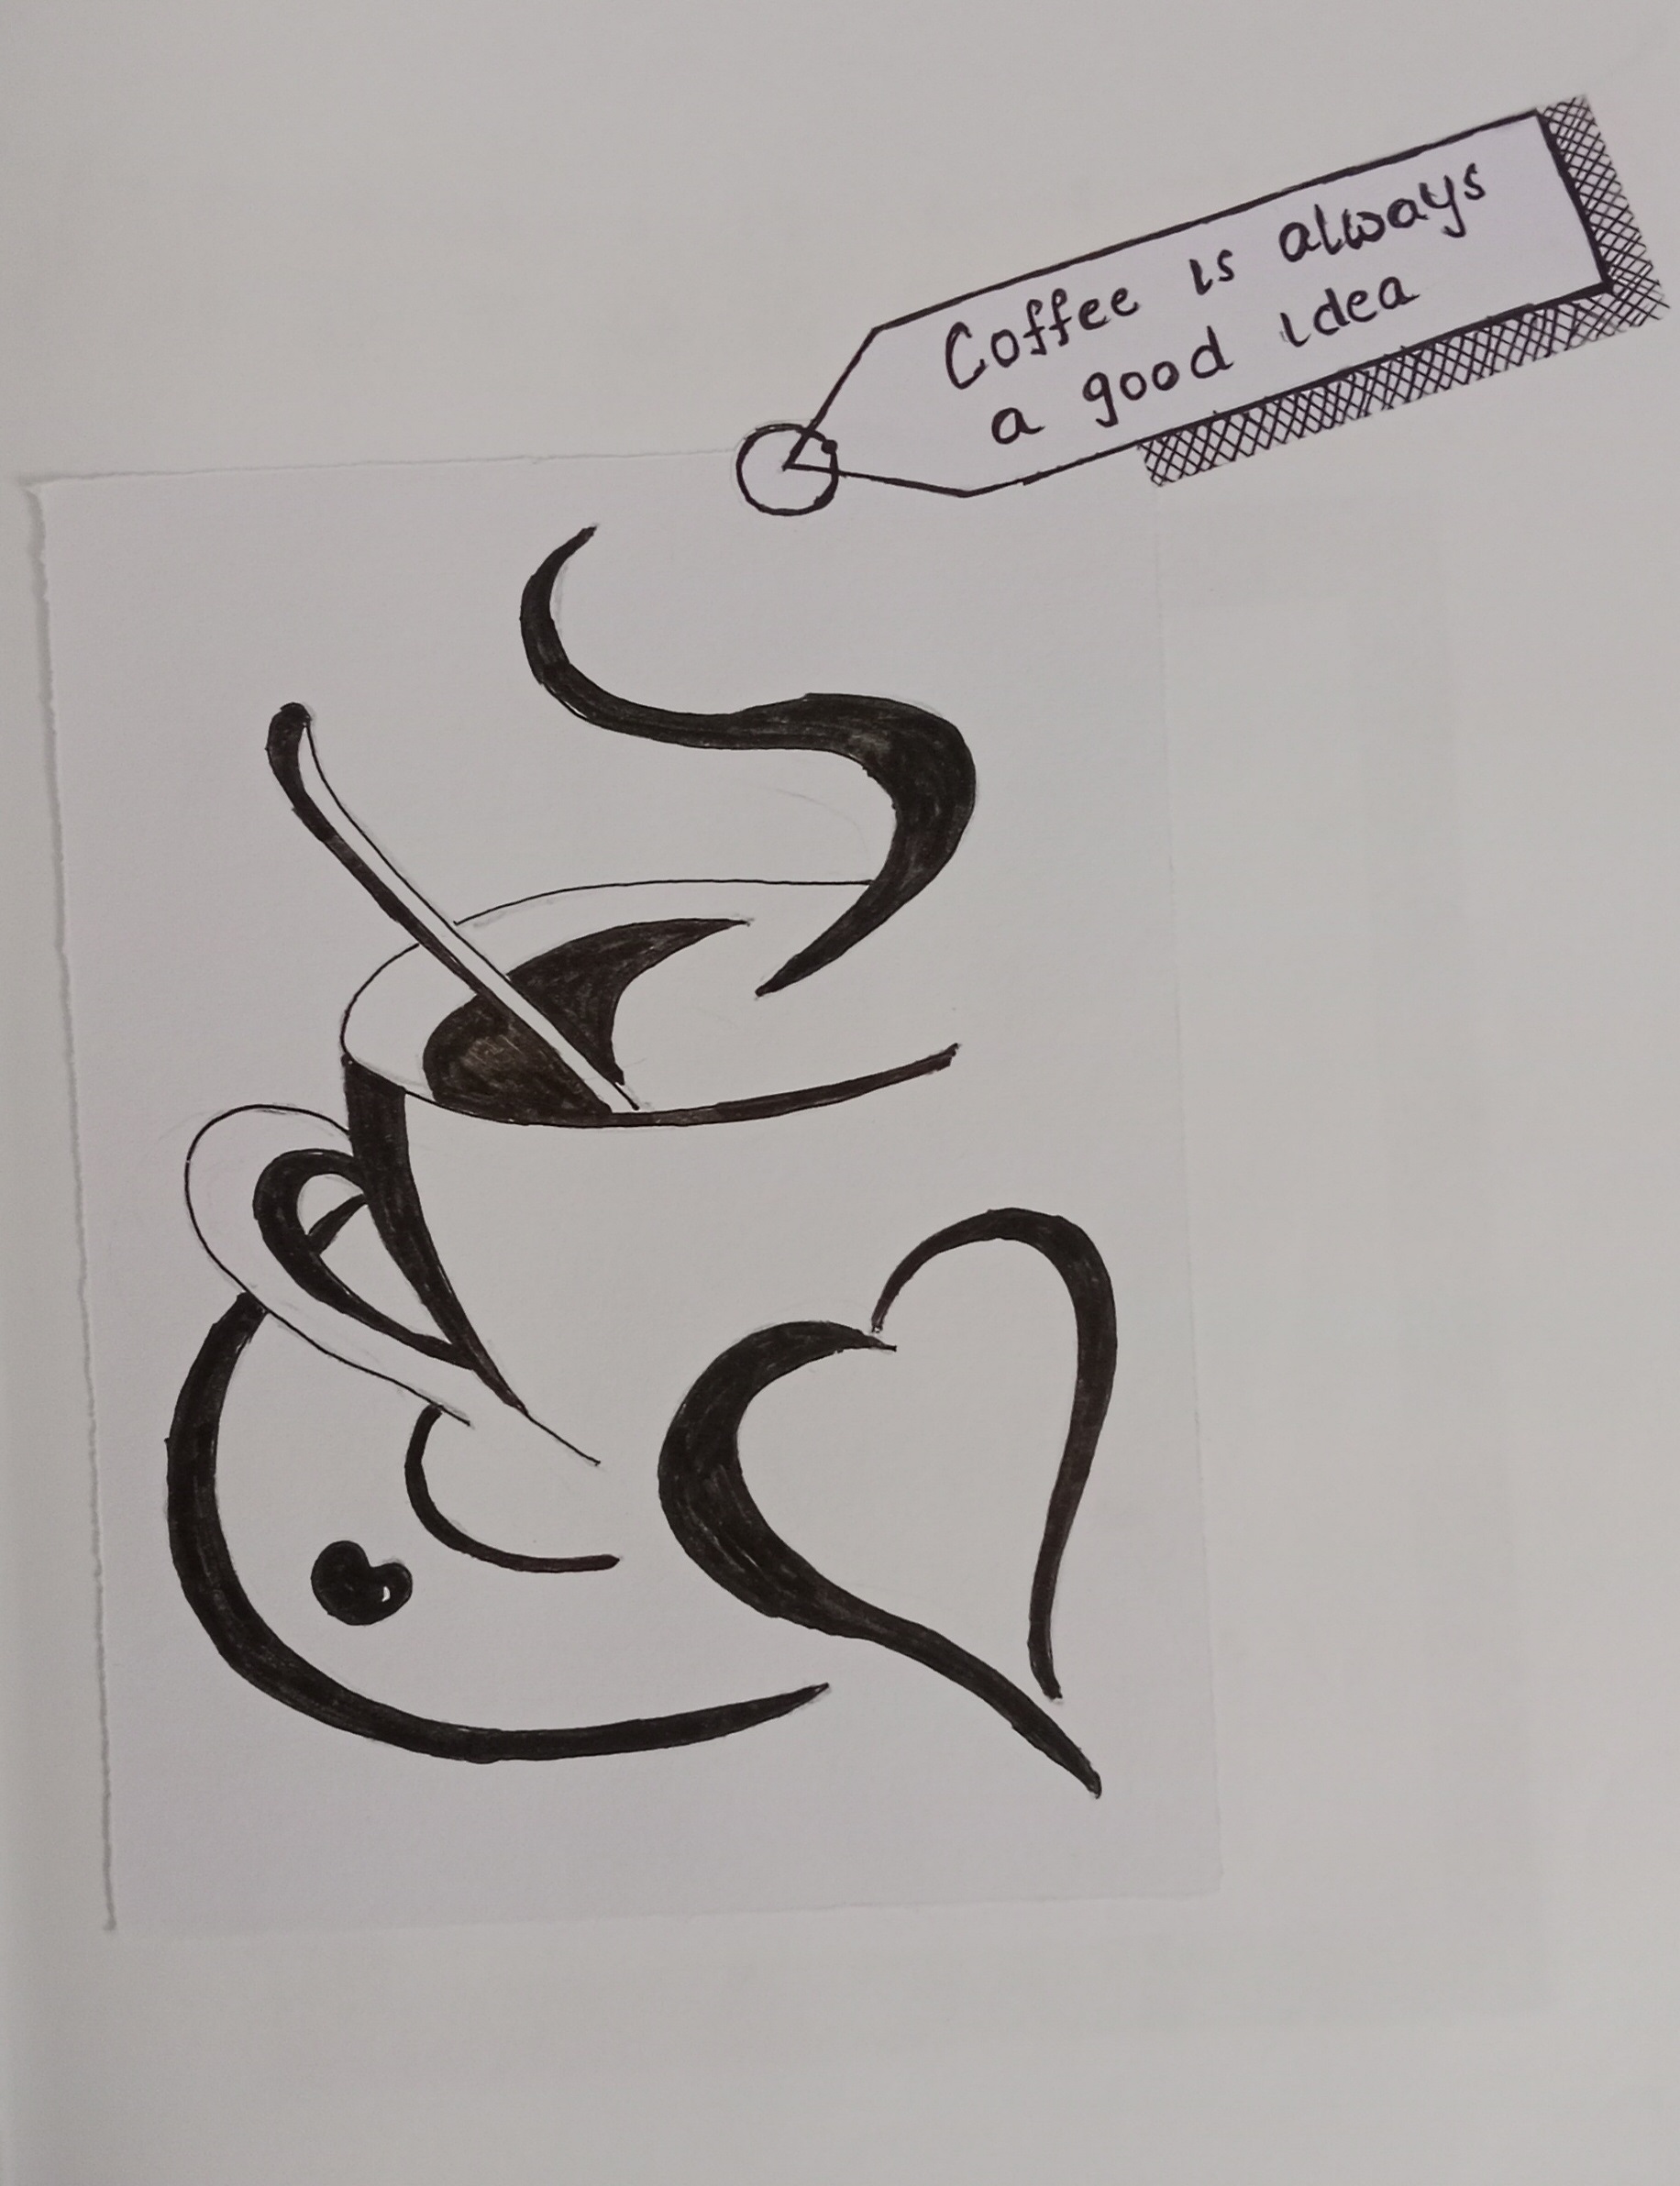 Coffee is always
a good idea